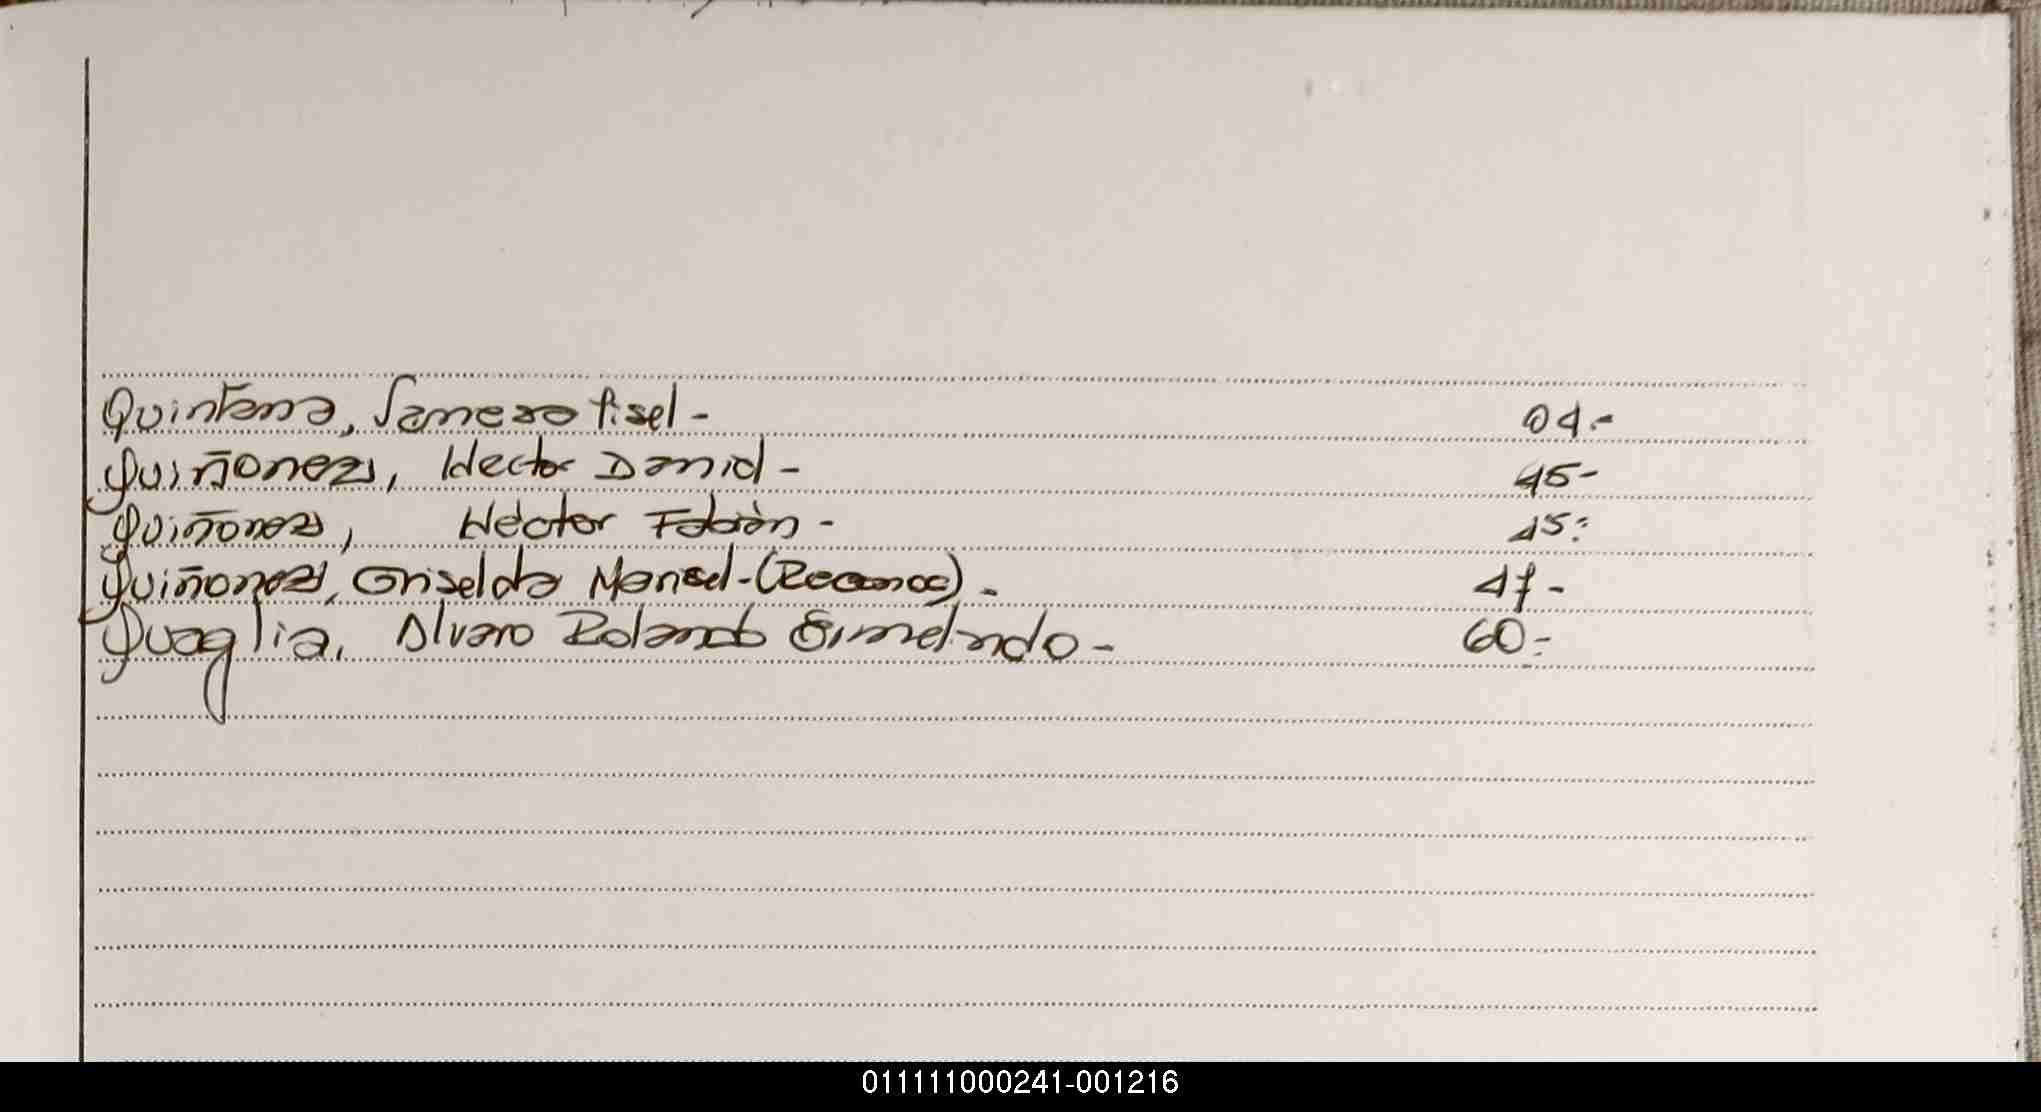 Quintana, Samera Aisel - 04.-
Quiñonez, Hector Daniel - 45-
Quiñonez, Héctor Fabián - 45:
Quiñonez, Griselda Marisel-(Reconoc). 47-
Quaglia, Alvaro Rolando Gumelindo - 60:-
011111000241-001216